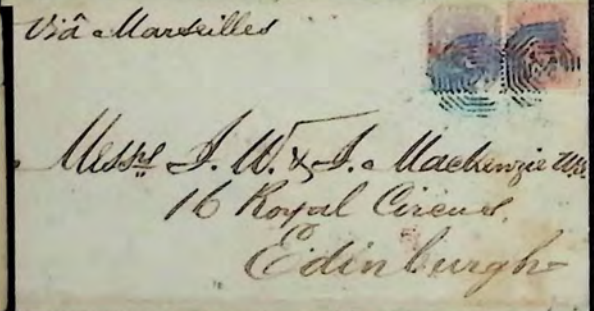 Viâ Marseilles
Messrs J. W. & J. Mackenzie W.S.
16 Royal Circus,
Edinburgh